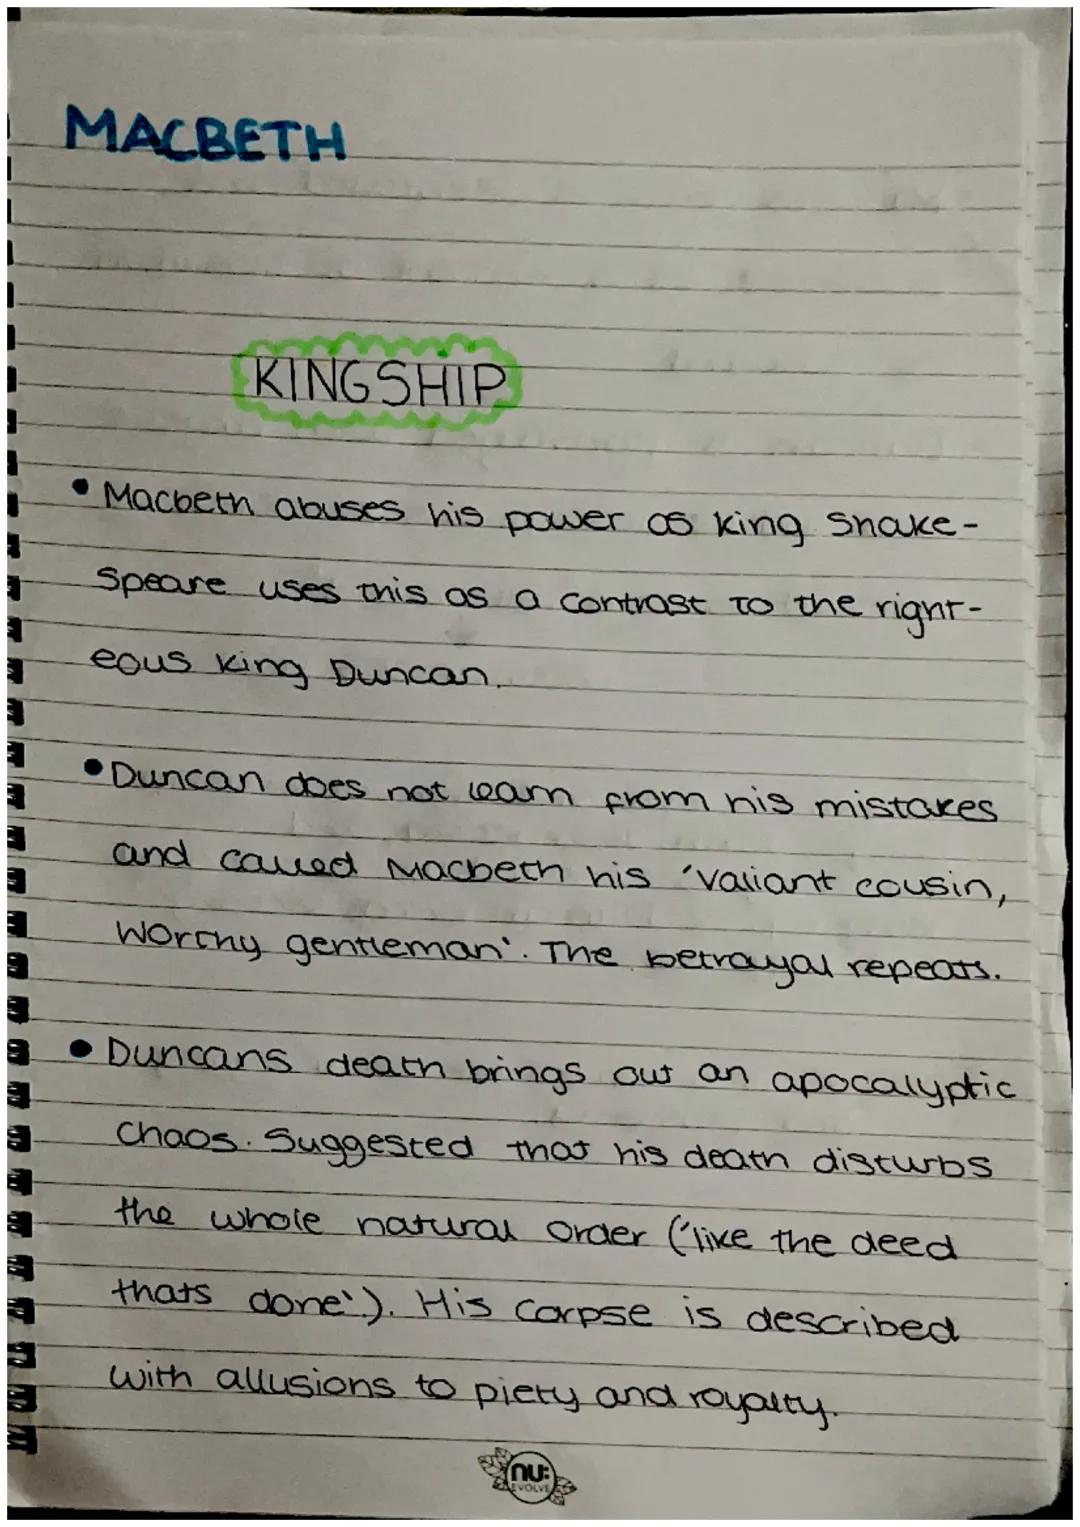 MACBETH
KINGSHIP
• Macbeth abuses his power as king Shake-
speare uses this as a contrast to the right-
eous king Duncan.
• Duncan does not learn from his mistakes
and called Macbeth his 'valiant cousin,
worthy gentleman'. The betrayal repeats.
• Duncans death brings out an apocalyptic
chaos. Suggested that his death disturbs
the whole natural order ('like the deed
thats done'). His corpse is described
with allusions to piety and royalty.
nu:
EVOLVE